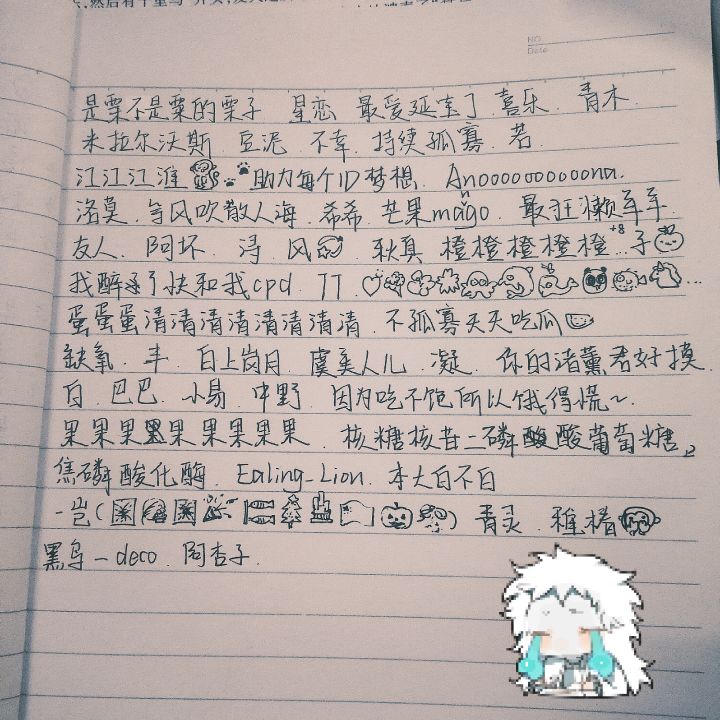 NO.
Date
是栗不是粟的栗子 星恋 最爱延宝了.喜乐.青木.
米拉尔沃斯 豆泥.不幸.持续孤寡.君.
江江江淮 助力每个ID梦想.Anoooooooooona.
洛莫.等风吹散人海.希希.芒果mango.最狂懒羊羊.
友人.阿坏.浔.风.秋真 橙橙橙橙橙+8...子
我醉了快和我cpd.TT.
蛋蛋蛋清清清清清清清清.不孤寡天天吃瓜
缺氧.丰.白上岗月.虞美人儿.凝.你的渚薰君好摸.
白.巴巴.小易.中野.因为吃不饱所以饿得慌~.
果果果果果果果果果.核糖核苷二磷酸酸葡萄糖.
焦磷酸化酶.Ealing-Lion.本大白不白
-岂( ) 青灵.稚椿
黑鸟-deco.阿杏子.